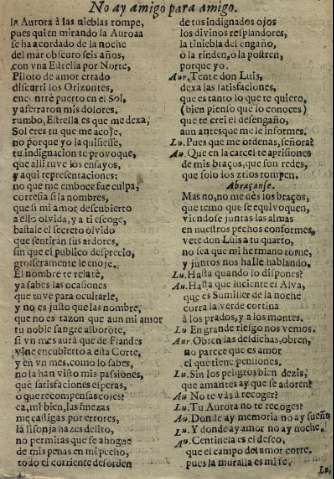 No ay amigo para amigo.
la Aurora á las nieblas rompe,
pues quien mirando la Auroaa
se ha acordado de la noche
del mar obscuro seis años,
con vna Estrella por Norte,
Piloto de amor errado
discurri los Orizontes,
encontré puerto en el Sol,
y aferraron mis dolores
rumbo, Estrella es que me dexa,
Sol eres tu que me acoje,
no porque yo la quisiesse,
tu indignacion te provoque,
que alli tuve los ensayos,
y aqui representaciones:
no que me emboce fue culpa,
cortesia si la nombres,
que si mi amor descubierto
a ello olvida, y a ti escoge,
bastale el secreto olvido
que sentirán sus ardores,
sin que el publico desprecio,
groseramente le enoje.
El nombre te relaté,
ya sabes las ocasiones
que tuve para ocultarle,
y no es justo que las nombre,
que no es razon que aun mi amor
tu noble sangre alborote,
si vn mes aurá que de Flandes
vine encubierto a esta Corte,
y en vn mes, como lo sabes,
no la han visto mis passiones,
que satisfaciones esperas,
o que recompensas cojes?
ea, mi bien, las finezas
me castigas por errores,
la lisonja hazes delito,
no permitas que se ahogue
de mis penas en mi pecho,
todo el corriente desorden
de tus indignados ojos
los divinos resplandores,
la tiniebla del engaño,
ò la rinden, ò la postren,
porque yo.
Au. Tente don Luis,
dexa las satisfaciones,
que es tanto lo que te quiero,
(bien pienso que lo conoces)
que te creí el desengaño,
aun antes que me le informes.
Lu. Pues que me ordenas, señora?
Au. Que en la carcel te aprisiones
de mis braços, que son redes,
que solo los zelos rompen.
Abraçanse.
Mas no, no me nes los braços,
que temo que se equivoquen,
viendose juntas las almas
en nuestros pechos conformes,
vete don Luis a tu quarto,
no sea que mi hermano torne,
y juntos nos halle hablando.
Lu. Hasta quando lo dispones?
Au. Hasta que luciente el Alva,
que es Sumiller de la noche
corra la verde cortina
à los prados, y a los montes.
Lu. En grande riesgo nos vemos.
Aur Obren las desdichas, obren,
no parece que es amor
el que tiene pensiones.
Lu. Sin los peligros bien dezis,
que amantes ay que se adoren?
Au. No te vàs à recoger?
Lu. Tu Aurora no te recoges?
Au. Donde ay memoria no ay sueño
Lu. Y donde ay amor no ay noche.
Au. Centinela es el deseo,
que el campo del amor corre,
pues la muralla es mi fe.
Lu.